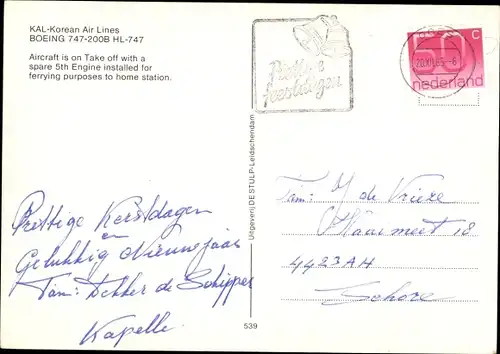 KAL-Korean Air Lines
BOEING 747-200B HL-747
Aircraft is on Take off with a
spare 5th Engine installed for
ferrying purposes to home station.
Prettige
feestdagen
20.XII.85-6
50 C
nederland
Uitgeverij DE STULP-Leidschendam
Prettige Kerstdagen
en
Gelukkig Nieuwjaar
Fam: Dekker de Schipper
Kapelle
Fam: J de Vrieze
18
4423AH
Schore
539